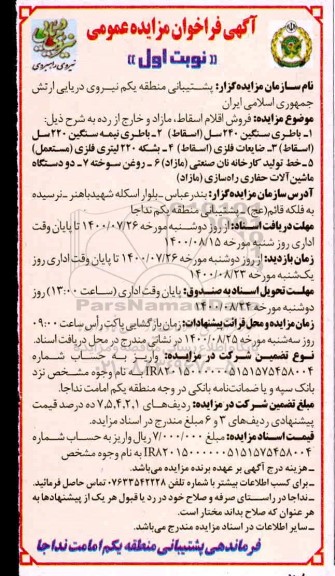 آگهی فراخوان مزایده عمومی
« نوبت اول »
نیروی راهبردی
نام سازمان مزایده‌گزار: پشتیبانی منطقه یکم نیروی دریایی ارتش
جمهوری اسلامی ایران
موضوع مزایده: فروش اقلام اسقاط، مازاد و خارج از رده به شرح ذیل:
۱- باطری سنگین ۲۴۰ سل (اسقاط) ۲- باطری نیمه سنگین ۲۲۰ سل
(اسقاط) ۳- ضایعات فلزی (اسقاط) ۴- بشکه ۲۲۰ لیتری فلزی (مستعمل)
۵- خط تولید کارخانه نان صنعتی (مازاد) ۶- روغن سوخته ۷- دو دستگاه
ماشین‌آلات حفاری راه‌سازی (مازاد)
آدرس سازمان مزایده گزار: بندرعباس ـ بلوار اسکله شهیدباهنر ـ نرسیده
به فلکه قائم(عج) پشتیبانی منطقه یکم نداجا
مهلت دریافت اسناد: از روز دوشنبه مورخه ۱۴۰۰/۰۷/۲۶ تا پایان وقت
اداری روز شنبه مورخه ۱۴۰۰/۰۸/۱۵
زمان بازدید: از روز دوشنبه مورخه ۱۴۰۰/۰۷/۲۶ تا پایان وقت اداری روز
یک‌شنبه مورخه ۱۴۰۰/۰۸/۲۳
مهلت تحویل اسناد به صندوق: پایان وقت اداری (ساعت ۱۳:۰۰) روز
دوشنبه مورخه ۱۴۰۰/۰۸/۲۴
زمان مزایده و محل قرائت پیشنهادات: زمان بازگشایی پاکت رأس ساعت ۰۹:۰۰
روز سه‌شنبه مورخه ۱۴۰۰/۰۸/۲۵ در نشانی مندرج در محل دریافت اسناد.
نوع تضمین شرکت در مزایده: واریز به حساب شماره
به نام وجوه مشخص نزد
بانک سپه و یا ضمانت‌نامه بانکی در وجه منطقه یکم امامت نداجا.
مبلغ تضمین شرکت در مزایده: ردیف‌های ۷،۵،۴،۲،۱ ده درصد قیمت
پیشنهادی ردیف‌های ۳ و ۶ مبلغ مندرج در اسناد مزایده.
قیمت اسناد مزایده: مبلغ ۷/۰۰۰/۰۰۰ ریال واریز به حساب شماره
به نام وجوه مشخص
ـ هزینه درج آگهی بر عهده برنده مزایده می‌باشد.
ـ برای کسب اطلاعات بیشتر با شماره تلفن ۰۷۶۳۳۵۴۲۲۲۸ تماس حاصل فرمائید.
ـ نداجا در راستای صرفه و صلاح خود در رد یا قبول هر یک از پیشنهادها به
هر عنوان که صلاح بداند مختار است.
ـ سایر اطلاعات در اسناد مزایده مندرج می‌باشد.
فرماندهی پشتیبانی منطقه یکم امامت نداجا